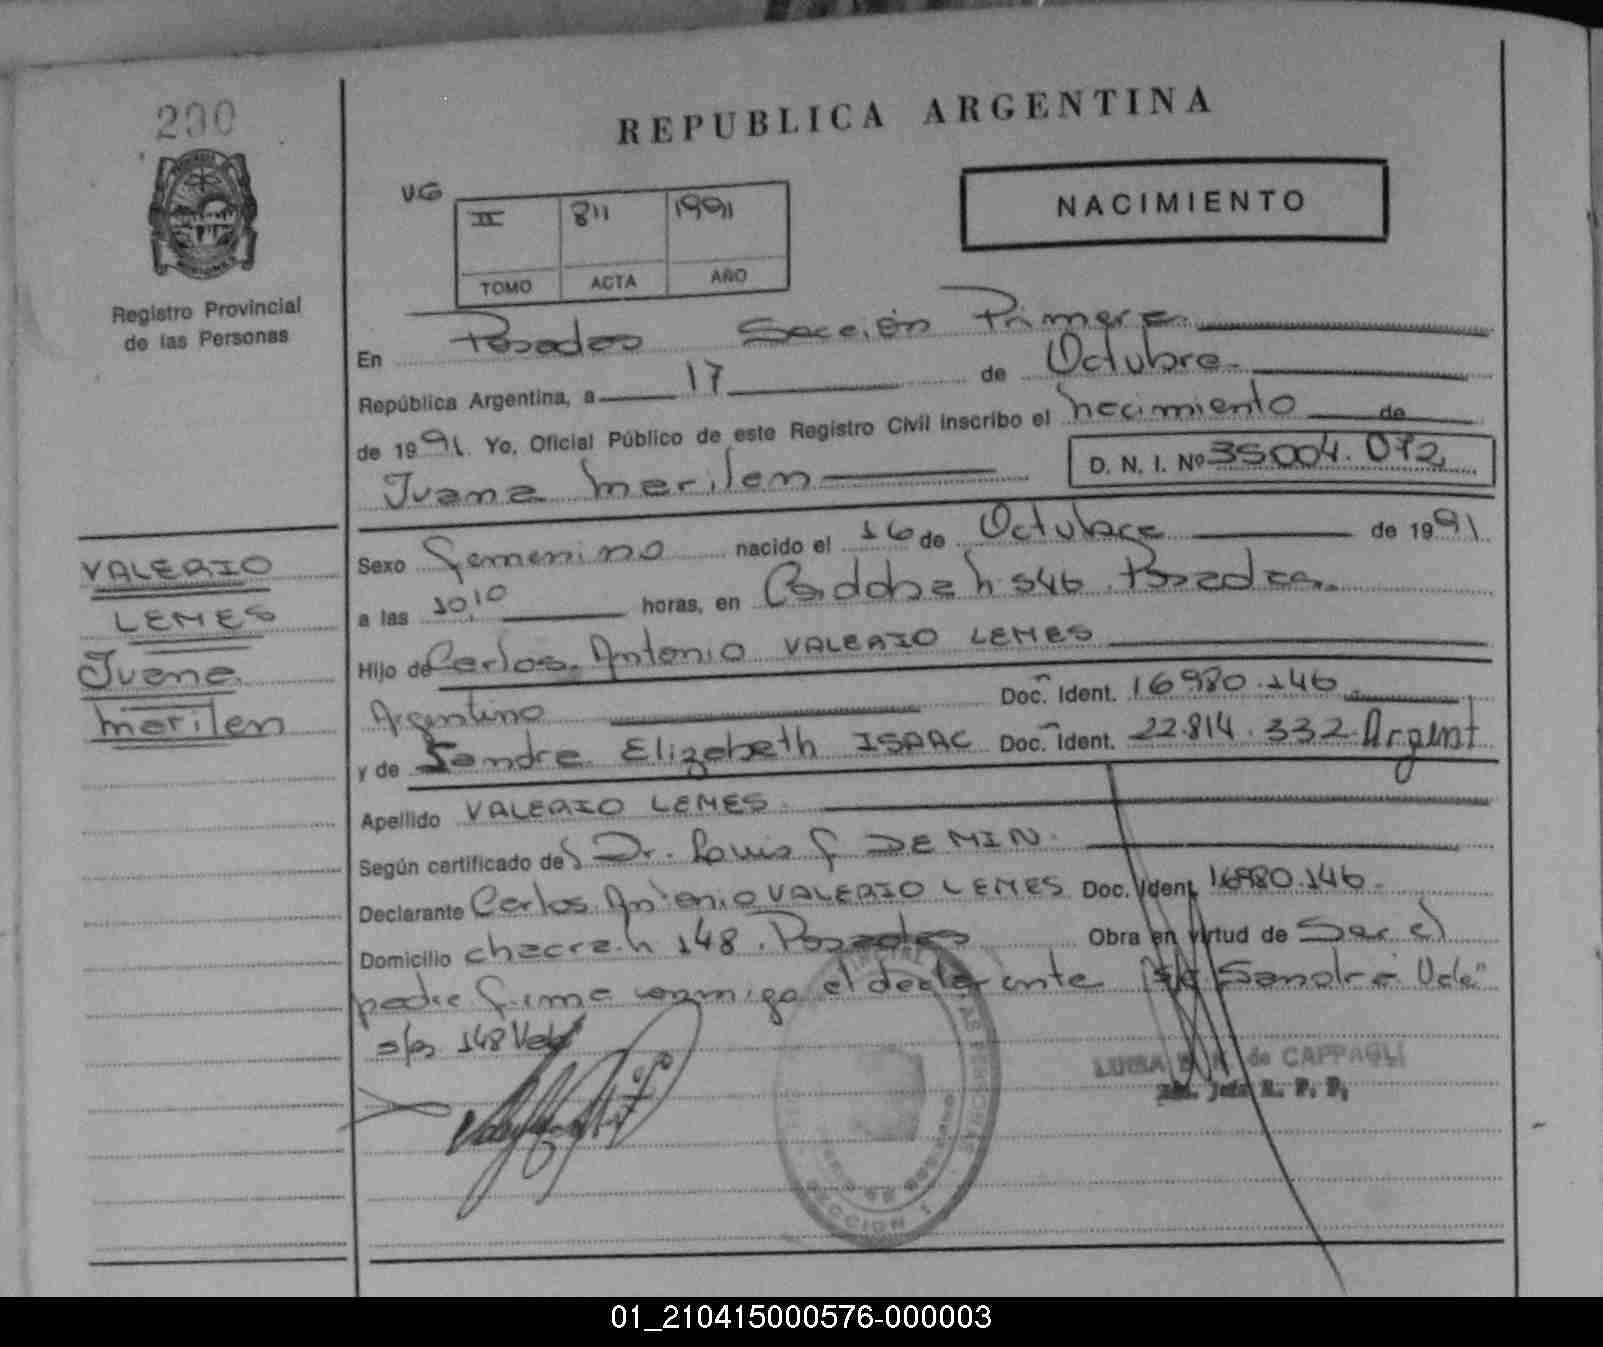 200
REPUBLICA ARGENTINA
VG
II 811 1991
TOMO ACTA AÑO
NACIMIENTO
Registro Provincial
de las Personas
En Posadas Sección Primera
República Argentina, a 17 de Octubre
de 1991. Yo, Oficial Público de este Registro Civil inscribo el nacimiento de
Juana Marilen D. N. I. Nº 35004.072
VALERIO
LEMES
Juana
Marilen
Sexo femenino nacido el 16 de Octubre de 1991
a las 10,10 horas, en Córdoba n 546 Posadas.
Hijo de Carlos Antonio VALERIO LEMES
Argentino Doc. Ident. 16980.146
y de Sandra Elizabeth ISAAC Doc. Ident. 22.814.332 Argent
Apellido VALERIO LEMES
Según certificado de Dr. Louis f DEMIN
Declarante Carlos Antonio VALERIO LEMES Doc. Ident. 16980.146
Domicilio chacra n 148. Posadas Obra en virtud de Ser el
padre firma conmigo el declarante Sandra Vale"
s/p 148 Vale
LUISA de CAPPAGLI
Jefe R. P. P.
SECCION 1
01_210415000576-000003